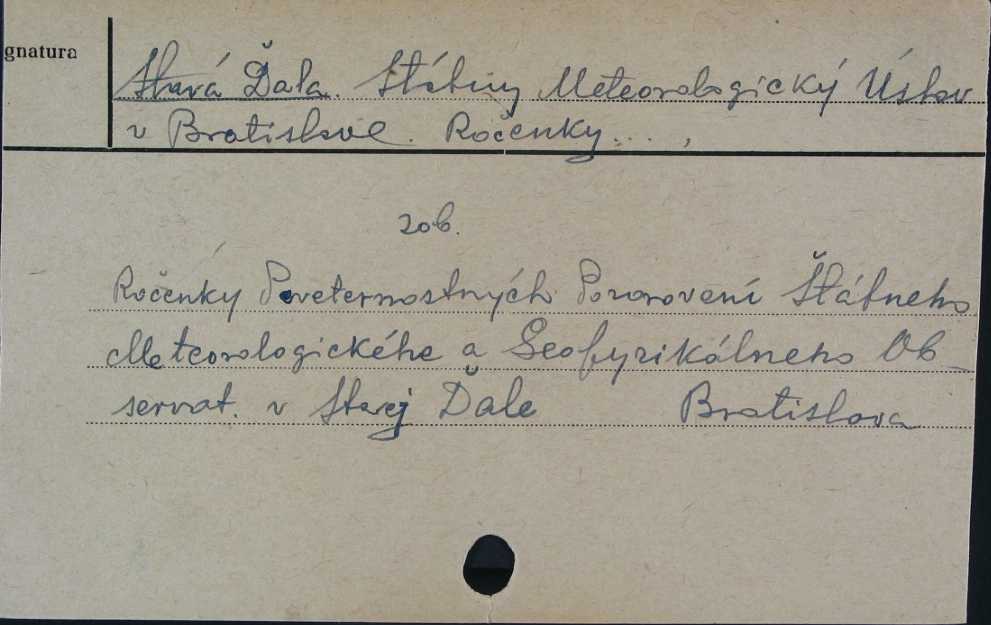 gnatura
Stará Ďala. Štátny Meteorologický Ústav
v Bratislave. Ročenky....,
zob.
Ročenky Poveternostných Pozorovení Štátneho
Meteorologického a Geofyzikálneho Ob
servat. v Starej Ďale Bratislava